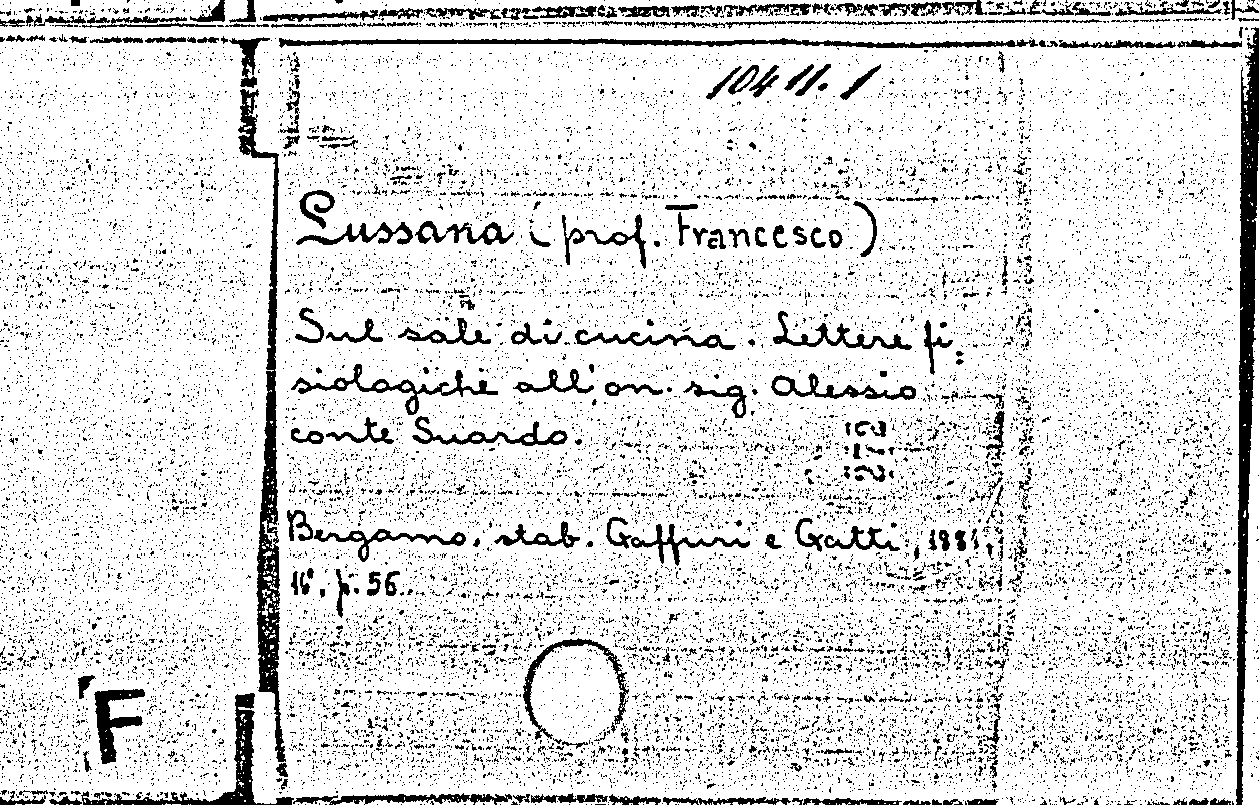 10411. 1
Lussana (prof. Francesco)
Sul sale di cucina. Lettere fi:
siologiche all'on. sig. Alessio
conte Suardo.
Bergamo, stab. Gaffuri e Gatti, 1881,
16°. p. 56.
F